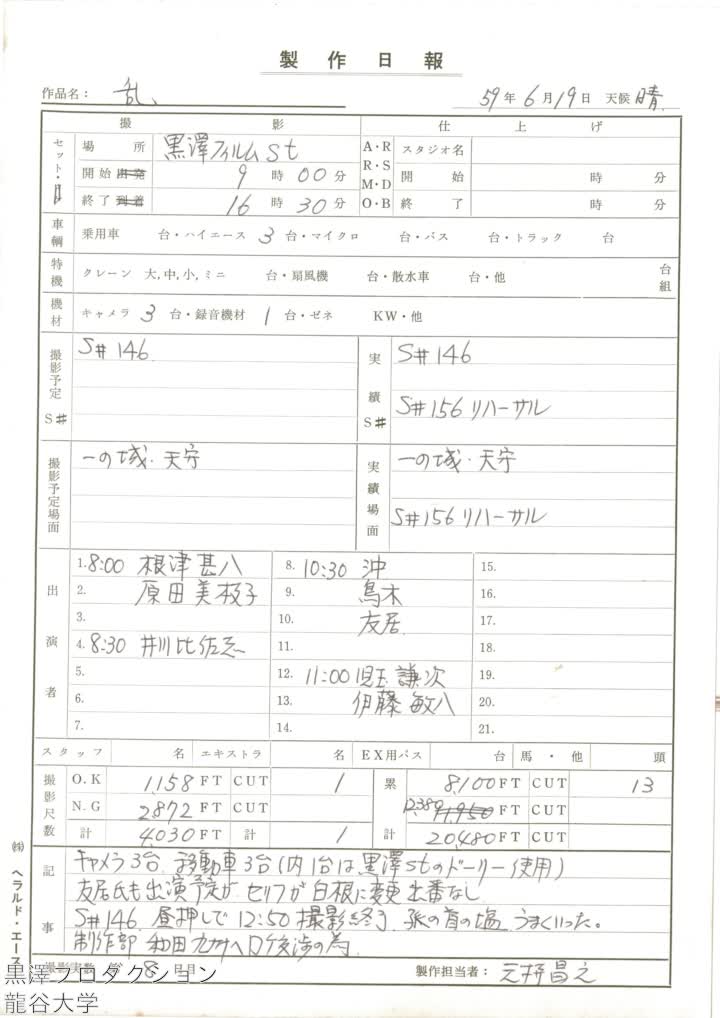 製作日報
作品名： 乱、 59年6月19日 天候 晴
撮影 仕上げ
セット・ 場所 黒澤フィルムSt A・R R・S M・D O・B スタジオ名
開始 出発 9時00分 開始 時 分
終了 到着 16時30分 終了 時 分
車輌 乗用車 台・ハイエース 3台・マイクロ 台・バス 台・トラック 台
特機 クレーン 大,中,小,ミニ 台・扇風機 台・散水車 台・他 台組
機材 キャメラ 3台・録音機材 1台・ゼネ KW・他
撮影予定 S# S#146 実績 S# S#146
S#156 リハーサル
撮影予定場面 一の城・天守 実績場面 一の城・天守
S#156 リハーサル
出演者 1. 8:00 根津甚八 8. 10:30 沖 15.
2. 原田美枝子 9. 鳥木 16.
3. 10. 友居 17.
4. 8:30 井川比佐志 11. 18.
5. 12. 11:00 児玉謙次 19.
6. 13. 伊藤敏八 20.
7. 14. 21.
スタッフ 名 エキストラ 名 EX用バス 台 馬・他 頭
撮影尺数 O.K 1,158 FT CUT 1 累計 8,100 FT CUT 13
N.G 2,872 FT CUT 12,380 11,950 FT CUT
計 4,030 FT 計 1 20,480 FT CUT
記事 キャメラ3台、移動車3台（内1台は黒澤Stのドーリー使用）
友居氏も出演予定が セリフが白根に変更 出番なし
S#146 昼押しで12:50 撮影終了、狐の首の塩、うまくいった。
制作部 和田 九州へロケ交渉の為
撮影実数 第 8 日目 製作担当者：
㈱ ヘラルド・エース
黒澤プロダクション
龍谷大学